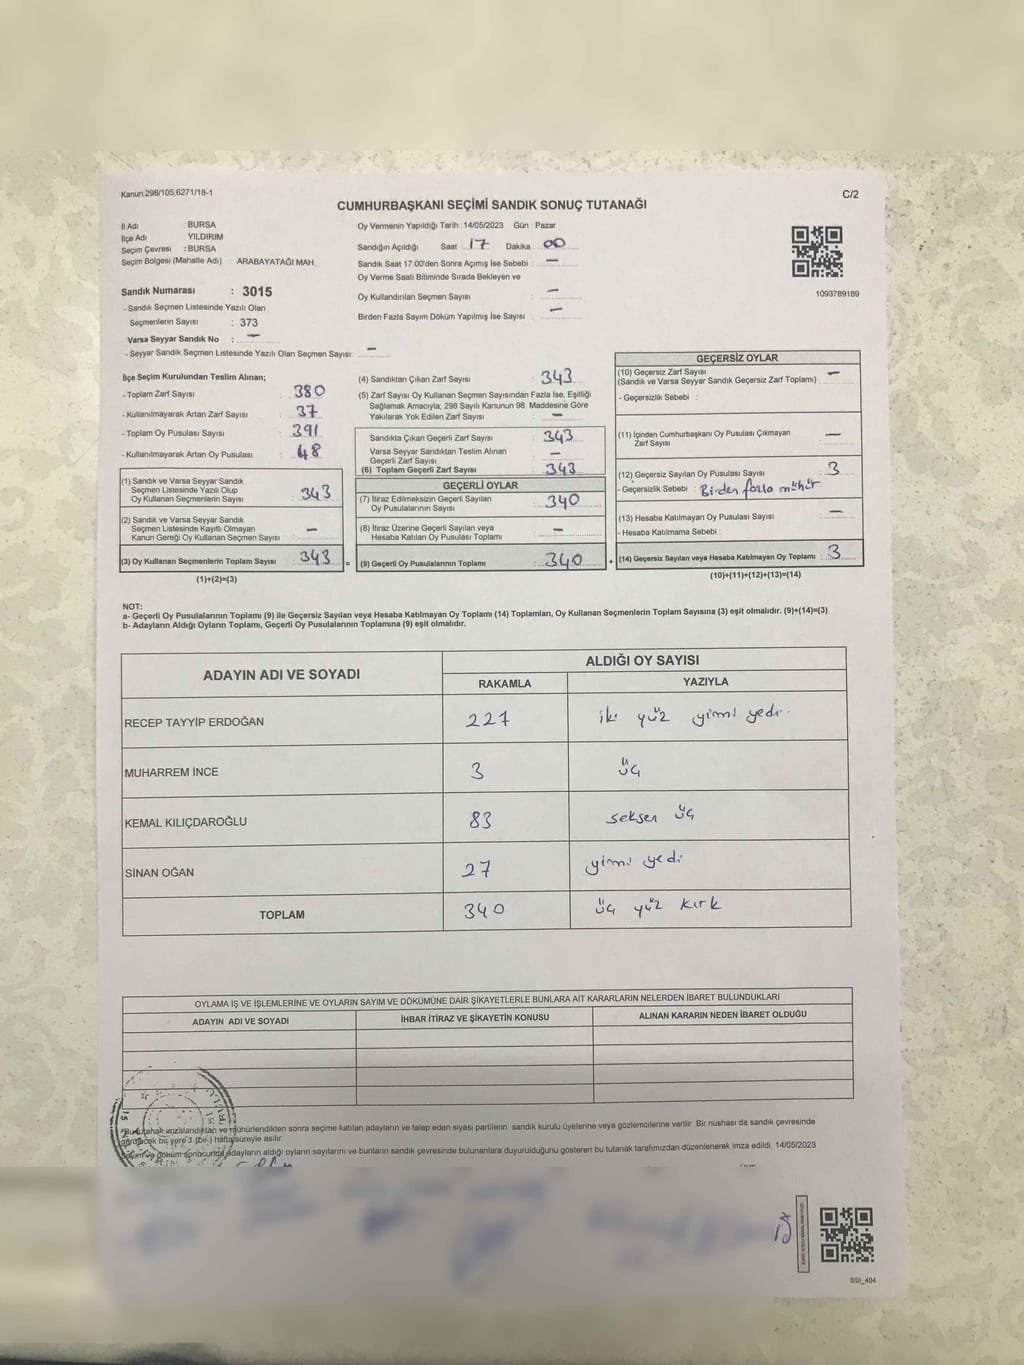 Kanun:298/105,6271/18-1
C/2
CUMHURBAŞKANI SEÇİMİ SANDIK SONUÇ TUTANAĞI
İl Adı BURSA
İlçe Adı YILDIRIM
Seçim Çevresi : BURSA
Seçim Bölgesi (Mahalle Adı) : ARABAYATAĞI MAH.
Sandık Numarası : 3015
- Sandık Seçmen Listesinde Yazılı Olan
Seçmenlerin Sayısı : 373
Varsa Seyyar Sandık No : —
- Seyyar Sandık Seçmen Listesinde Yazılı Olan Seçmen Sayısı: —
Oy Vermenin Yapıldığı Tarih :14/05/2023 Gün : Pazar
Sandığın Açıldığı Saat : 17 Dakika : 00
Sandık Saat 17:00'den Sonra Açımış İse Sebebi : —
Oy Verme Saati Bitiminde Sırada Bekleyen ve
Oy Kullandırılan Seçmen Sayısı : —
Birden Fazla Sayım Döküm Yapılmış İse Sayısı : —
1093789189
İlçe Seçim Kurulundan Teslim Alınan;
- Toplam Zarf Sayısı : 380
- Kullanılmayarak Artan Zarf Sayısı : 37
- Toplam Oy Pusulası Sayısı : 391
- Kullanılmayarak Artan Oy Pusulası : 48
(1) Sandık ve Varsa Seyyar Sandık
Seçmen Listesinde Yazılı Olup
Oy Kullanan Seçmenlerin Sayısı : 343
(2) Sandık ve Varsa Seyyar Sandık
Seçmen Listesinde Kayıtlı Olmayan
Kanun Gereği Oy Kullanan Seçmen Sayısı : —
(3) Oy Kullanan Seçmenlerin Toplam Sayısı : 343
(1)+(2)=(3)
(4) Sandıktan Çıkan Zarf Sayısı : 343
(5) Zarf Sayısı Oy Kullanan Seçmen Sayısından Fazla İse, Eşitliği
Sağlamak Amacıyla; 298 Sayılı Kanunun 98. Maddesine Göre
Yakılarak Yok Edilen Zarf Sayısı : —
Sandıkta Çıkan Geçerli Zarf Sayısı : 343
Varsa Seyyar Sandıktan Teslim Alınan
Geçerli Zarf Sayısı : —
(6) Toplam Geçerli Zarf Sayısı : 343
GEÇERLİ OYLAR
(7) İtiraz Edilmeksizin Geçerli Sayılan
Oy Pusulalarının Sayısı : 340
(8) İtiraz Üzerine Geçerli Sayılan veya
Hesaba Katılan Oy Pusulası Toplamı : —
= (9) Geçerli Oy Pusulalarının Toplamı : 340 +
GEÇERSİZ OYLAR
(10) Geçersiz Zarf Sayısı
(Sandık ve Varsa Seyyar Sandık Geçersiz Zarf Toplamı) : —
- Geçersizlik Sebebi :
(11) İçinden Cumhurbaşkanı Oy Pusulası Çıkmayan
Zarf Sayısı : —
(12) Geçersiz Sayılan Oy Pusulası Sayısı : 3
- Geçersizlik Sebebi : Birden fazla mühür
(13) Hesaba Katılmayan Oy Pusulası Sayısı : —
- Hesaba Katılmama Sebebi :
(14) Geçersiz Sayılan veya Hesaba Katılmayan Oy Toplamı : 3
(10)+(11)+(12)+(13)=(14)
NOT:
a- Geçerli Oy Pusulalarının Toplamı (9) ile Geçersiz Sayılan veya Hesaba Katılmayan Oy Toplamı (14) Toplamları, Oy Kullanan Seçmenlerin Toplam Sayısına (3) eşit olmalıdır. (9)+(14)=(3)
b- Adayların Aldığı Oyların Toplamı, Geçerli Oy Pusulalarının Toplamına (9) eşit olmalıdır.
ADAYIN ADI VE SOYADI ALDIĞI OY SAYISI
RAKAMLA YAZIYLA
RECEP TAYYİP ERDOĞAN 227 iki yüz yirmi yedi
MUHARREM İNCE 3 üç
KEMAL KILIÇDAROĞLU 83 seksen üç
SİNAN OĞAN 27 yirmi yedi
TOPLAM 340 üç yüz kırk
OYLAMA İŞ VE İŞLEMLERİNE VE OYLARIN SAYIM VE DÖKÜMÜNE DAİR ŞİKAYETLERLE BUNLARA AİT KARARLARIN NELERDEN İBARET BULUNDUKLARI
ADAYIN ADI VE SOYADI İHBAR İTİRAZ VE ŞİKAYETİN KONUSU ALINAN KARARIN NEDEN İBARET OLDUĞU
*Bu tutanak imzalandıktan ve mühürlendikten sonra seçime katılan adayların ve talep eden siyasi partilerin sandık kurulu üyelerine veya gözlemcilerine verilir. Bir nüshası da sandık çevresinde
görülecek bir yere 1 (bir ) hafta süreyle asılır.
Sayım ve döküm sonucunda adayların aldığı oyların sayılarını ve bunların sandık çevresinde bulunanlara duyurulduğunu gösteren bu tutanak tarafımızdan düzenlenerek imza edildi. 14/05/2023
SSI_404